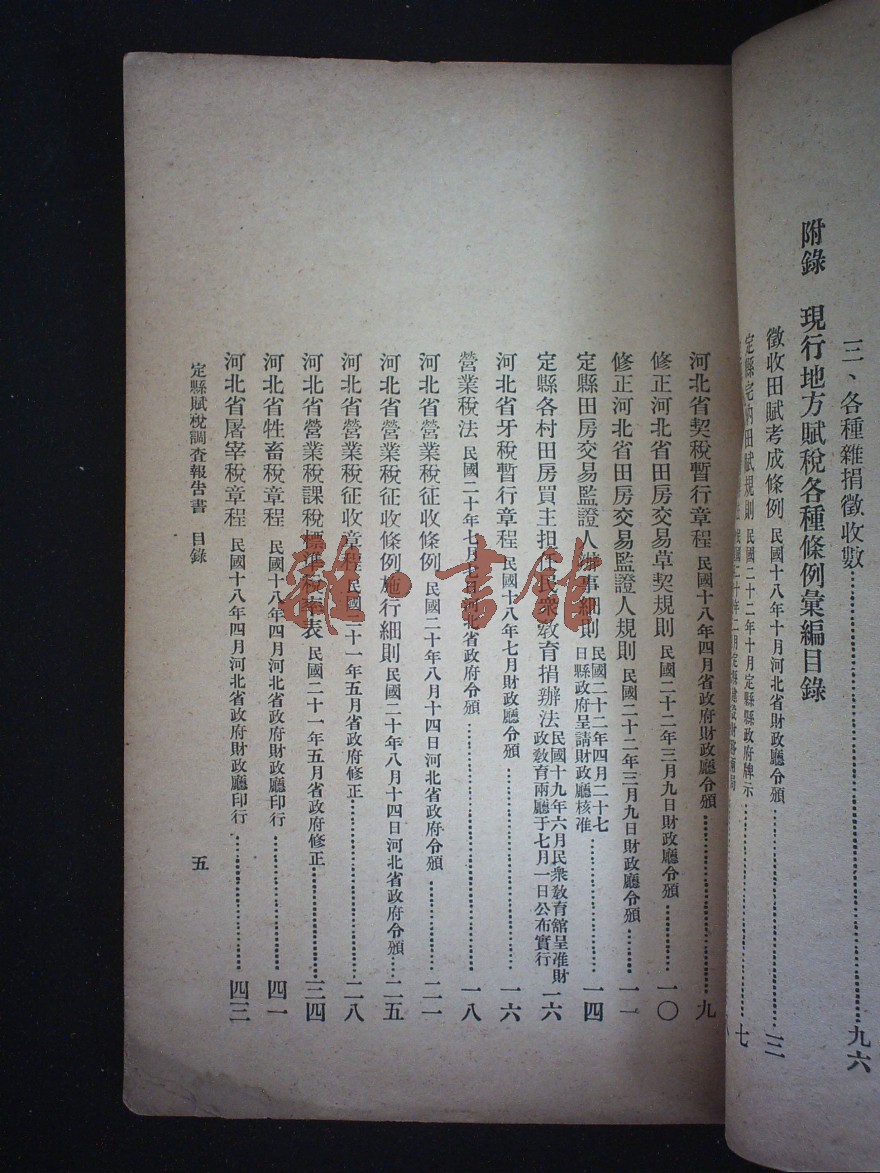 三、各種雜捐徵收數……九六
附錄 現行地方賦稅各種條例彙編目錄
徵收田賦考成條例 民國十八年十月河北省財政廳令頒……三
定縣宅內田賦規則 民國二十二年十月定縣縣政府牌示……七
河北省契稅暫行章程 民國十八年四月省政府財政廳令頒……九
修正河北省田房交易草契規則 民國二十二年三月九日財政廳令頒……一〇
修正河北省田房交易監證人規則 民國二十二年三月九日財政廳令頒……一一
定縣田房交易監證人辦事細則 民國二十二年四月二十七日縣政府呈請財政廳核准……一四
定縣各村田房買主担任民眾教育捐辦法 民國十九年六月民眾教育館呈准財政教育兩廳于七月一日公布實行 一六
河北省牙稅暫行章程 民國十八年七月財政廳令頒……一六
營業稅法 民國二十年七月七日河北省政府令頒……一八
河北省營業稅征收條例 民國二十年八月十四日河北省政府令頒……二一
河北省營業稅征收條例施行細則 民國二十年八月十四日河北省政府令頒……二五
河北省營業稅征收章程 民國二十一年五月省政府修正……二八
河北省營業稅課稅標準稅率表 民國二十一年五月省政府修正……三四
河北省牲畜稅章程 民國十八年四月河北省政府財政廳印行……四一
河北省屠宰稅章程 民國十八年四月河北省政府財政廳印行……四三
定縣賦稅調查報告書 目錄
五
雜·書館